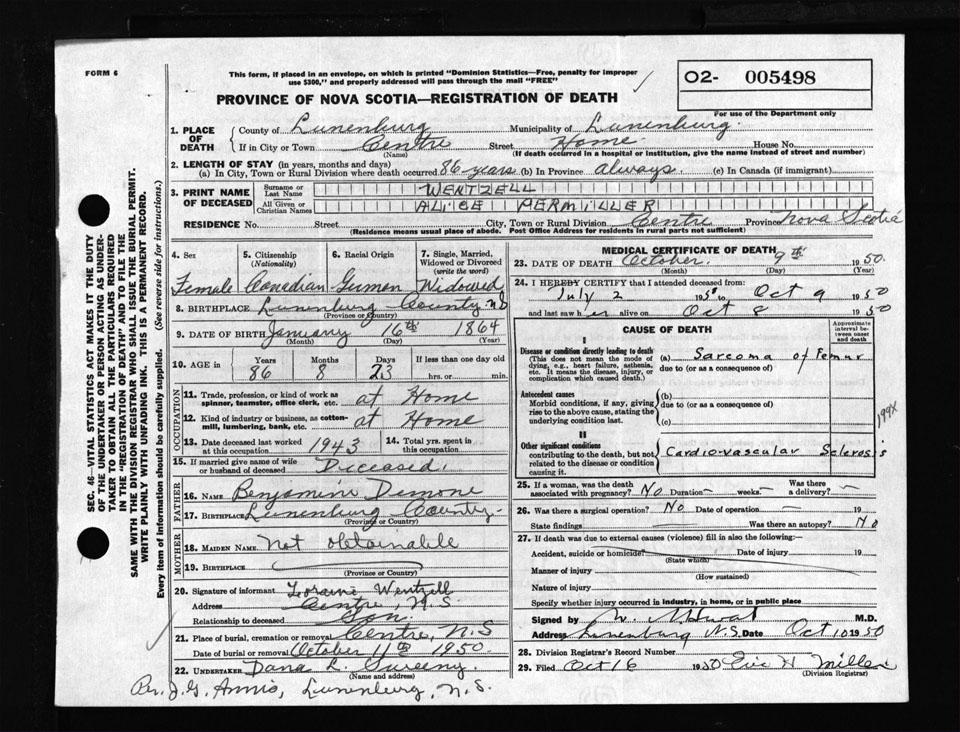 FORM 6
This form, if placed in an envelope, on which is printed "Dominion Statistics—Free, penalty for improper
use $300," and properly addressed will pass through the mail "FREE"
O2- 005498
For use of the Department only
PROVINCE OF NOVA SCOTIA—REGISTRATION OF DEATH
1. PLACE OF DEATH County of Lunenburg Municipality of Lunenburg.
If in City or Town Centre Street Home House No.
(Name) (If death occurred in a hospital or institution, give the name instead of street and number)
2. LENGTH OF STAY (in years, months and days)
(a) In City, Town or Rural Division where death occurred 86 years (b) In Province always. (c) In Canada (if immigrant)
3. PRINT NAME OF DECEASED Surname or Last Name WENTZELL
All Given or Christian Names ALICE PERMILLER
RESIDENCE No. Street City, Town or Rural Division Centre Province Nova Scotia
(Residence means usual place of abode. Post Office Address for residents in rural parts not sufficient)
4. Sex 5. Citizenship (Nationality) 6. Racial Origin 7. Single, Married, Widowed or Divorced (write the word)
Female Canadian German Widowed
8. BIRTHPLACE Lunenburg County NS
(Province or Country)
9. DATE OF BIRTH January 16th 1864
(Month) (Day) (Year)
10. AGE Years Months Days If less than one day old
86 8 23 hrs. or min.
OCCUPATION
11. Trade, profession, or kind of work as spinner, teamster, office clerk, etc. at Home
12. Kind of industry or business, as cotton-mill, lumbering, bank, etc. at Home
13. Date deceased last worked at this occupation 1943 14. Total yrs. spent in this occupation
15. If married give name of wife or husband of deceased Deceased.
FATHER
16. NAME Benjamin Demone
17. BIRTHPLACE Lunenburg County
(Province or Country)
MOTHER
18. MAIDEN NAME Not obtainable
19. BIRTHPLACE
(Province or Country)
20. Signature of informant Loraine Wentzell
Address Centre, N.S
Relationship to deceased Son.
21. Place of burial, cremation or removal Centre, N.S
Date of burial or removal October 11th 1950.
22. UNDERTAKER Dana L. Sweeny.
(Name and address)
Per. J.G. Annis, Lunenburg, N.S.
MEDICAL CERTIFICATE OF DEATH
23. DATE OF DEATH October. 9th 1950.
(Month) (Day) (Year)
24. I HEREBY CERTIFY that I attended deceased from:
July 2 1950 to Oct 9 1950
and last saw her alive on Oct 8 1950
CAUSE OF DEATH Approximate interval between onset and death
I
Disease or condition directly leading to death (a) Sarcoma of Femur
(This does not mean the mode of dying, e.g., heart failure, asthenia, etc. It means the disease, injury, or complication which caused death.) due to (or as a consequence of)
Antecedent causes
Morbid conditions, if any, giving rise to the above cause, stating the underlying condition last.
(b)
due to (or as a consequence of)
(c)
II
Other significant conditions
contributing to the death, but not related to the disease or condition causing it. Cardio-vascular Sclerosis
25. If a woman, was the death associated with pregnancy? No Duration— weeks.— Was there a delivery? —
26. Was there a surgical operation? No Date of operation — 19
State findings Was there an autopsy? No
27. If death was due to external causes (violence) fill in also the following:—
Accident, suicide or homicide? Date of injury 19
(State which)
Manner of injury
(How sustained)
Nature of injury
Specify whether injury occurred in industry, in home, or in public place
Signed by M.D.
Address Lunenburg N.S. Date Oct 10 1950
28. Division Registrar's Record Number
29. Filed Oct 16 1950 Eric H Miller
(Division Registrar)
SEC. 46—VITAL STATISTICS ACT MAKES IT THE DUTY
OF THE UNDERTAKER OR PERSON ACTING AS UNDER-
TAKER TO OBTAIN ALL THE PARTICULARS REQUIRED
IN THE "REGISTRATION OF DEATH" AND TO FILE THE
SAME WITH THE DIVISION REGISTRAR WHO SHALL ISSUE THE BURIAL PERMIT.
WRITE PLAINLY WITH UNFADING INK. THIS IS A PERMANENT RECORD.
Every item of information should be carefully supplied. (See reverse side for instructions.)